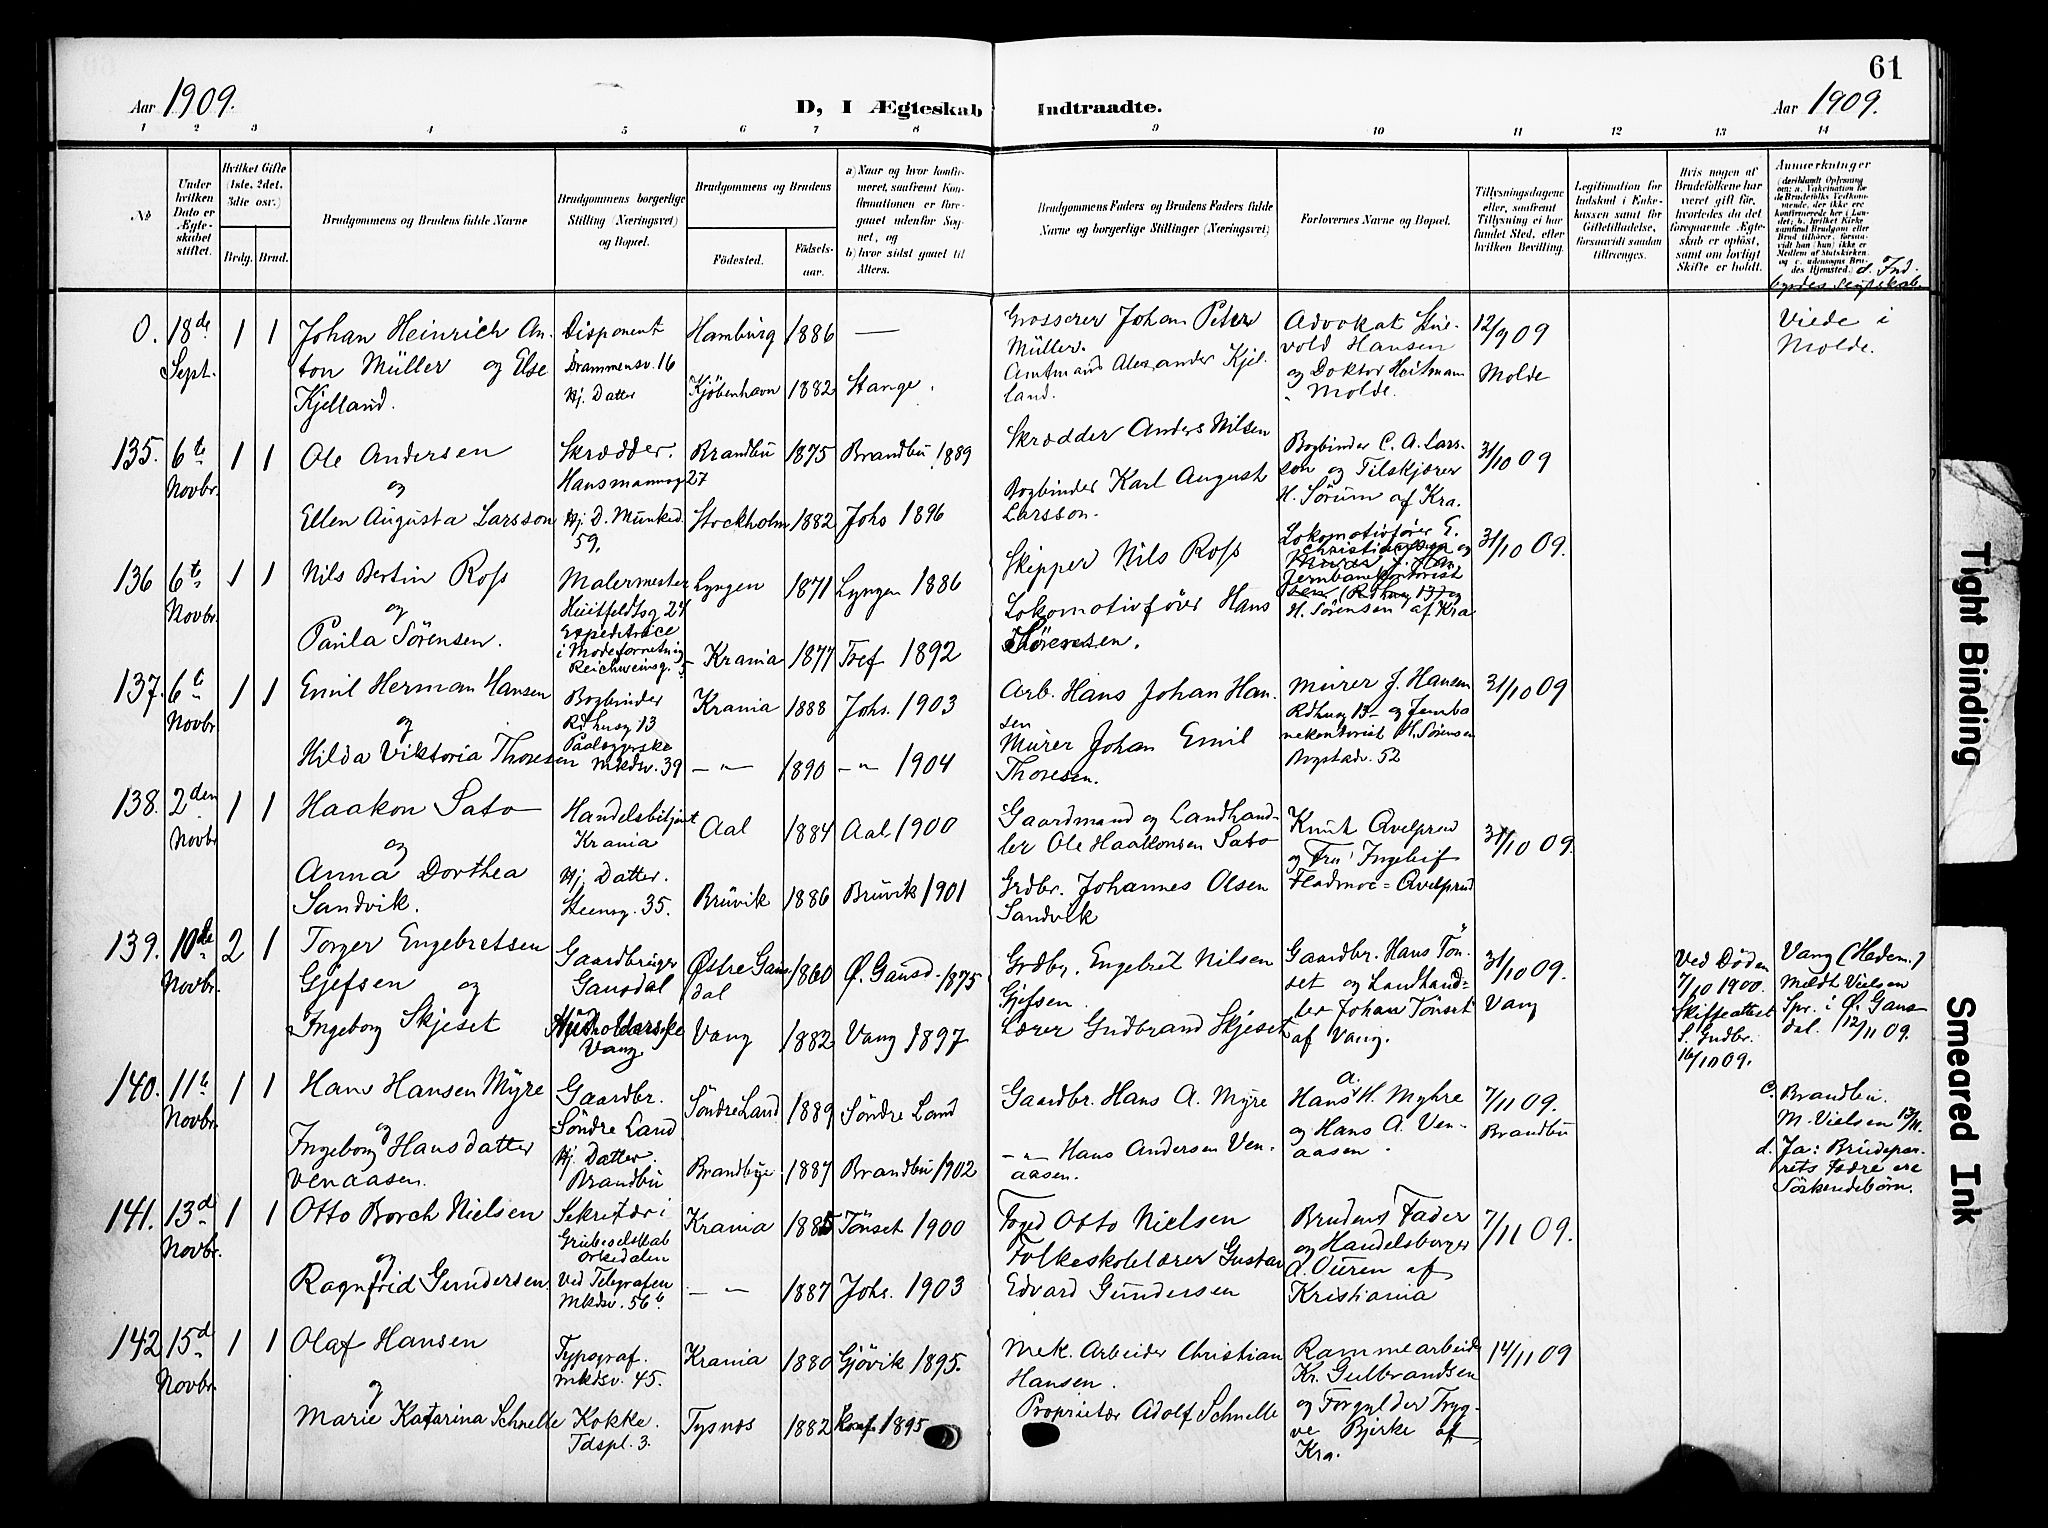 61
Aar 1909.
D, I Ægteskab Indtraadte.
Aar 1909.
1 2 3 4 5 6 7 8 9 10 11 12 13 14
No
Under hvilken Dato er Ægteskabet stiftet.
Hvilket Gifte (1ste, 2det, 3die osv.)
Brdg. Brud.
Brudgommens og Brudens fulde Navne
Brudgommens borgerlige Stilling (Næringsvei) og Bopæl.
Brudgommens og Brudens
Fødested.
Fødselsaar.
a) Naar og hvor konfirmeret, saafremt Konfirmationen er foregaaet udenfor Sognet, og
b) hvor sidst gaaet til Alters.
Brudgommens Faders og Brudens Faders fulde Navne og borgerlige Stillinger (Næringsvei)
Forlovernes Navne og Bopæl.
Tillysningsdagene eller, saafremt Tillysning ei har fundet Sted, efter hvilken Bevilling.
Legitimation for Indskud i Enkekassen samt for Giftetilladelse, forsaavidt saadan tiltrænges.
Hvis nogen af Brudefolkene har været gift før, hvorledes da det foregaaende Ægteskab er opløst, samt om lovligt Skifte er holdt.
Anmerkninger
(deriblandt Oplysning om: a. Vakcination for de Brudefolks Vedkommende, der ikke ere konfirmerede her i Landet; b. hvilket Kirkesamfund Brudgom eller Brud tilhører, forsaavidt han (hun) ikke er Medlem af Statskirken og c. udensogns Brudes Hjemsted.) d. Indbyrdes Slegtskab
0. 18de Sept. 1 1
Johan Heinrich Anton Müller og Else Kjelland.
Disponent Drammensv. 16
Hj. Datter
Hamburg 1886 —
Kjøbenhavn 1882 Stange.
Grosserer Johan Peter Müller.
Amtmand Alexander Kjelland.
Advokat Hansen og Doktor Heitmann
" Molde.
12/9 09
Molde
Viede i Molde.
135. 6te Novbr. 1 1
Ole Andersen
og
Ellen Augusta Larsson
Skrædder.
Hansmannsg 27
Hj. D. Munked. 59.
Brandbu 1875 Brandbu 1889
Stockholm 1882 Johs 1896
Skrædder Anders Nilsen
Bogbinder Karl August Larsson.
Bogbinder C. A. Larsson og Tilskjærer H. Sørum af Kra.
31/10 09
136 6te Novbr. 1 1
Nils Bertin Ross
og
Paula Sørensen.
Malermester
Huitfeldtsg 24
Expeditrice i Modeforretning
Reichweinsg.
Lyngen 1871 Lyngen 1886
Krania 1877 Tref 1892
Skipper Nils Ross
Lokomotivfører Hans Sørensen.
Lokomotivfører E. Christiansen og
Jernbanekontorist
H. Sørensen af Kra
31/10 09.
137. 6te Novbr. 1 1
Emil Herman Hansen
og
Hilda Viktoria Thoresen
Bogbinder
Rdhusg 13
Paalægerske
Mkdsv. 39
Krania 1888 Johs. 1903
—"— 1890 —"— 1904
Arb. Hans Johan Hansen
Murer Johan Emil Thoresen.
Murer J. Hansen
Rdhusg 13 — og Jernbanekontorist H. Sørensen
Bogstadv. 52
31/10 09
138. 2den Novbr 1 1
Haakon Sato
og
Anna Dorthea Sandvik.
Handelsbetjent
Krania
Hj. Datter.
Steensg. 35.
Aal 1884 Aal 1900
Bruvik 1886 Bruvik 1901
Gaardmand og Landhandler Ole Haakonsen Sato
Grdbr. Johannes Olsen Sandvik
Knut Qvelprud
og Fru Ingeleif Fladmoe=Qvelprud
31/10 09.
139. 10de Novbr. 2 1
Torger Engebretsen Gjefsen og
Ingeborg Skjeset
Gaardbruger
Gausdal
Husholderske
Vang
Østre Gausdal 1860 Ø. Gausd. 1875
Vang 1882 Vang 1897
Grdbr. Engebret Nilsen Gjefsen.
Lærer Gudbrand Skjeset
Gaardbr. Hans Tønset og Landhandler Johan Tønset af Vang.
31/10 09.
Vang
Ved Døden 7/10 1900.
Skifteattest
S. Gudbr.
16/10 09.
Vang (Hedem.)
Meldt Vielsen
Spr. i Ø. Gausdal. 12/11 09.
140. 11te Novbr. 1 1
Hans Hansen Myre
og
Ingeborg Hansdatter Venaasen.
Gaardbr.
Søndre Land
Hj. Datter.
Brandbu
Søndre Land 1889 Søndre Land
Brandbye 1887 Brandbu 1902
Gaardbr. Hans A. Myre
—"— Hans Andersen Venaasen.
Hans A. H. Myhre
og Hans A. Venaasen.
7/11 09.
Brandbu
c. Brandbu.
M. Vielsen 13/11.
d. Ja: Brudeparrets Fædre ere Søskendebørn.
141. 13d Novbr. 1 1
Otto Borch Nielsen
og
Ragnfrid Gundersen
Sekretær i
Grubeselskab
Orkedalen
Ved Telegrafen
Mkdsv. 56b.
Krania 1885 Tönset 1900
—"— 1887 Johs. 1903
Foged Otto Nielsen
Folkeskolelærer Gustav Edvard Gundersen
Brudens Fader
og Handelsborger
A. Ouren af
Kristiania
7/11 09.
142 15d Novbr. 1 1
Olaf Hansen
og
Marie Katarina Schnelle
Typograf.
Mkdsv. 45.
Kokke.
Tdspl. 3.
Krania 1880 Gjøvik 1895.
Tysnæs 1882 1895
Mek. Arbeider Christian Hansen.
Proprietær Adolf Schnelle
Rammearbeider
Kr. Gulbrandsen
og Forgylder Trygve Bjerke af
Kra.
14/11 09
Tight Binding
Smeared Ink